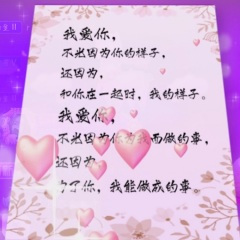 我爱你，
不光因为你的样子，
还因为，
和你在一起时，我的样子。
我爱你，
不光因为你为我而做的事，
还因为，
为了你，我能做成的事。